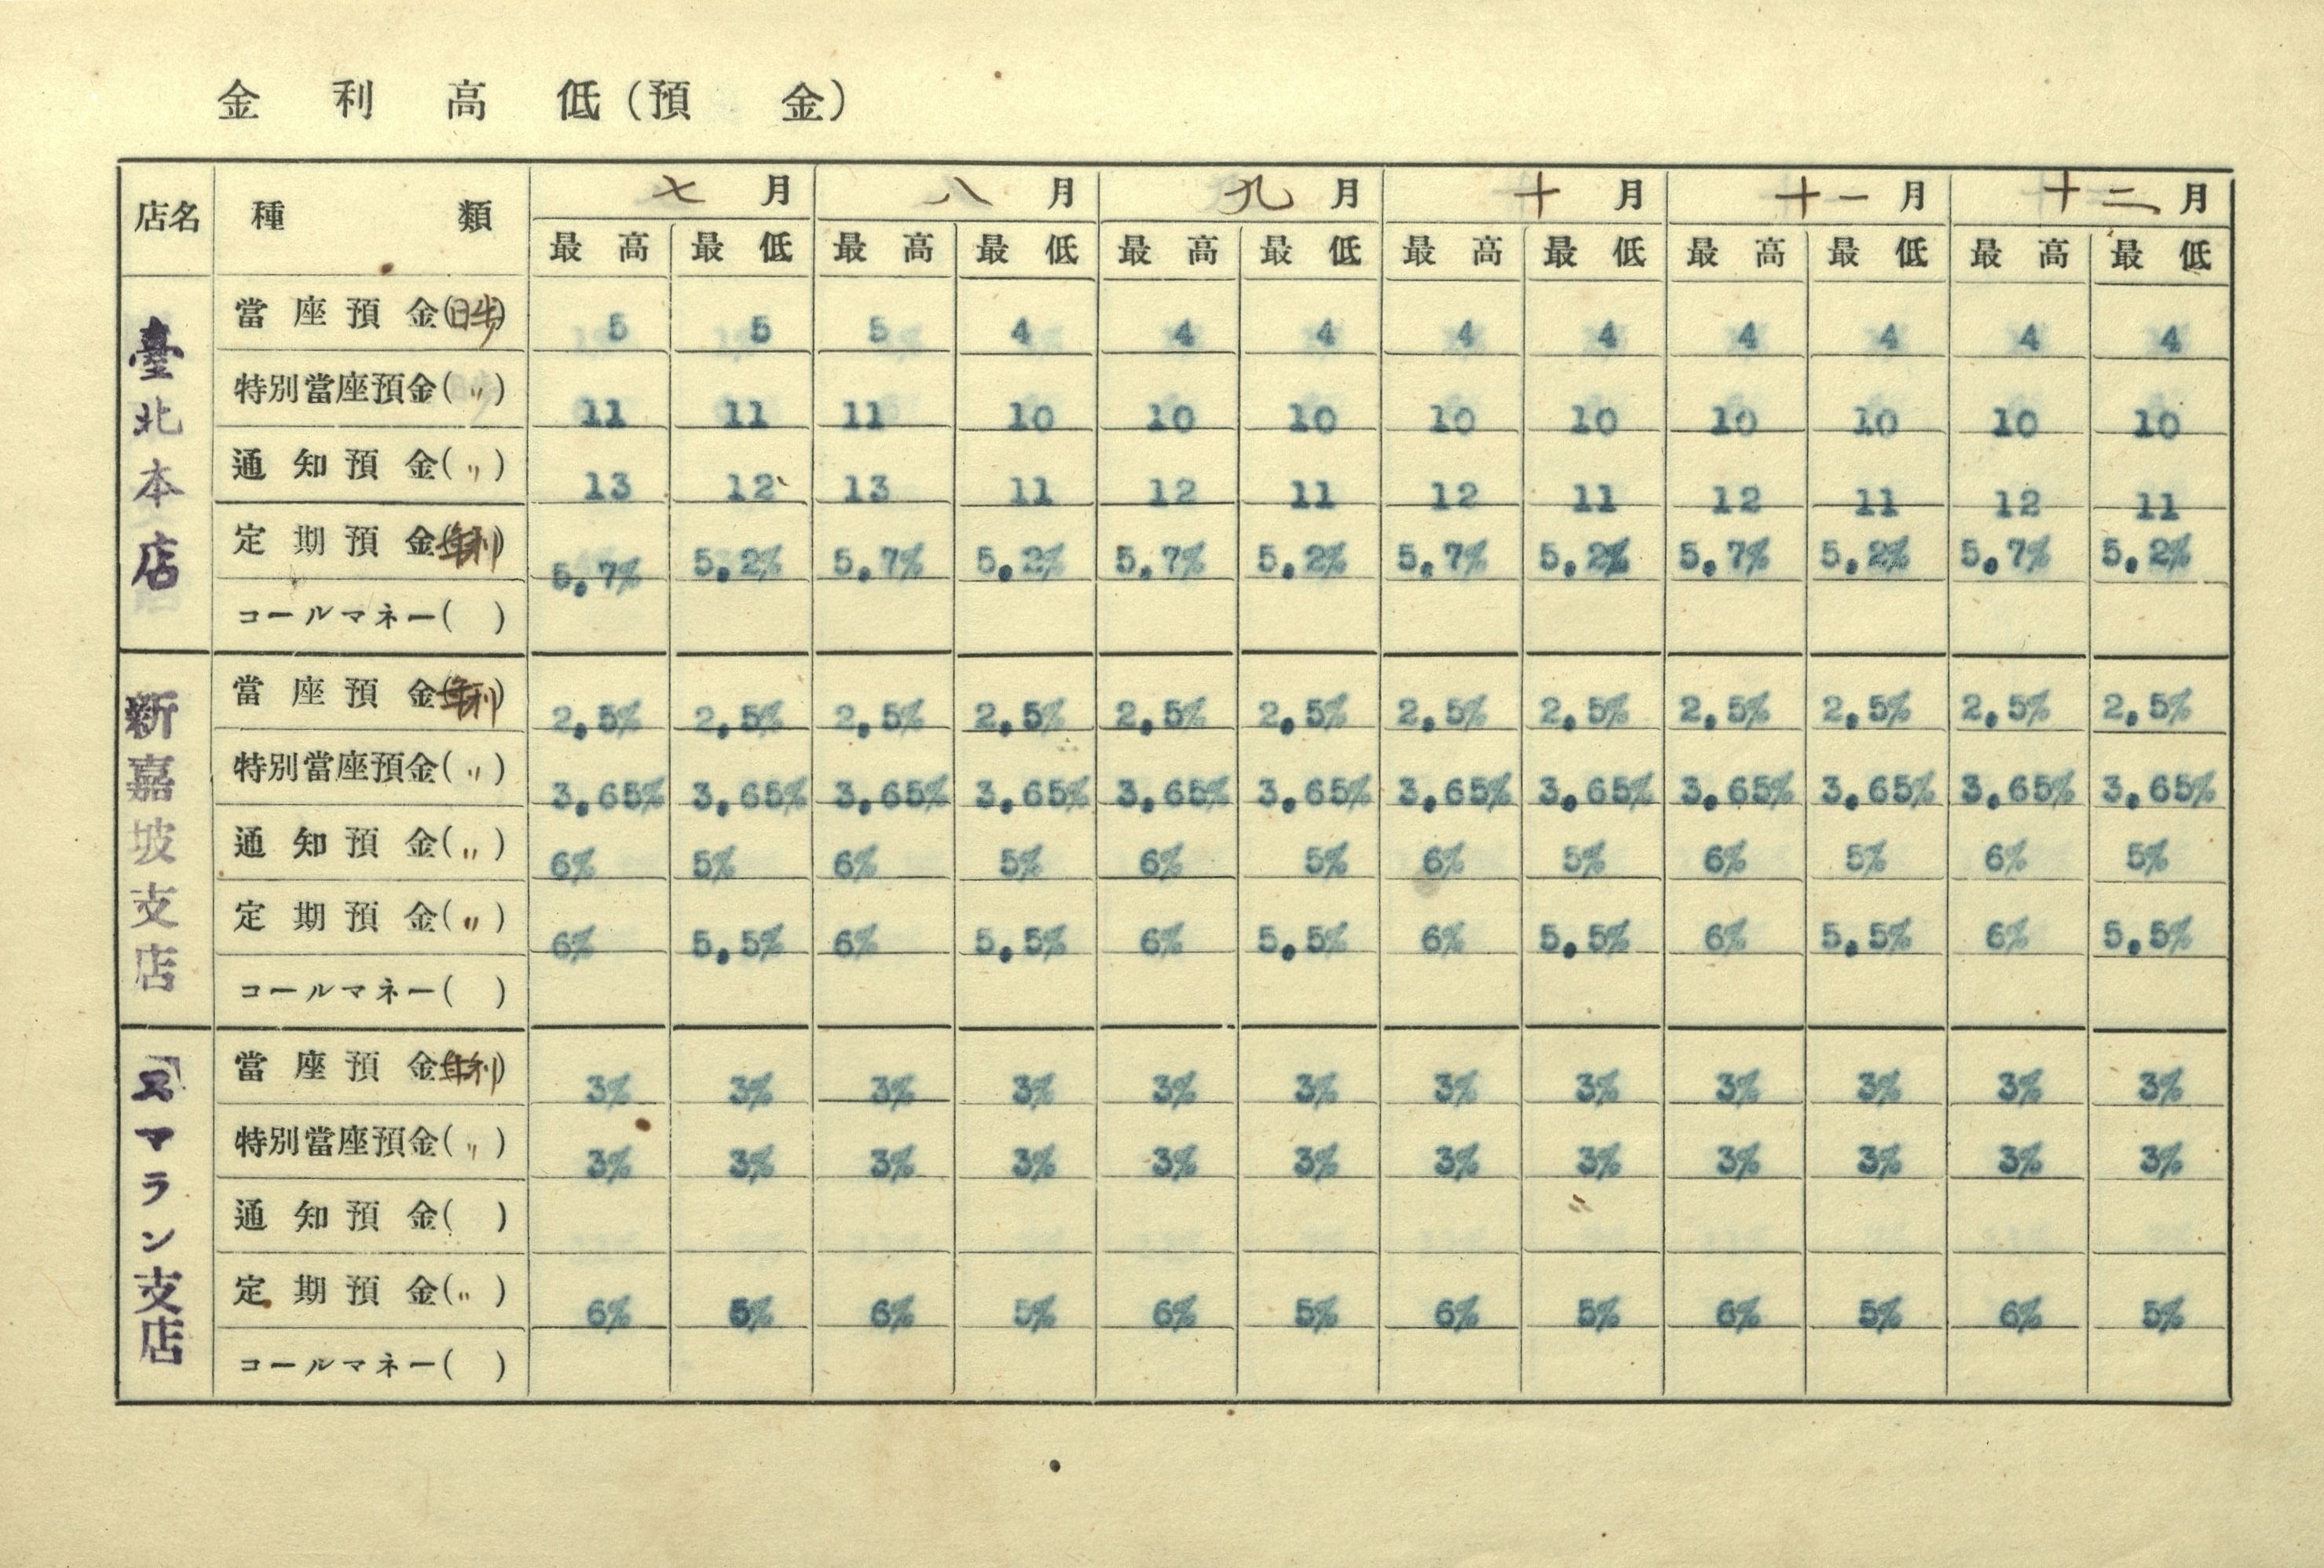 金利高低(預金)
店名 種類 七月 八月 九月 十月 十一月 十二月
最高 最低 最高 最低 最高 最低 最高 最低 最高 最低 最高 最低
臺北本店
當座預金(日歩) 5 5 5 4 4 4 4 4 4 4 4 4
特別當座預金(〃) 11 11 11 10 10 10 10 10 10 10 10 10
通知預金(〃) 13 12 13 11 12 11 12 11 12 11 12 11
定期預金(年利) 5.7% 5.2% 5.7% 5.2% 5.7% 5.2% 5.7% 5.2% 5.7% 5.2% 5.7% 5.2%
コールマネー( )
新嘉坡支店
當座預金(年利) 2.5% 2.5% 2.5% 2.5% 2.5% 2.5% 2.5% 2.5% 2.5% 2.5% 2.5% 2.5%
特別當座預金(〃) 3.65% 3.65% 3.65% 3.65% 3.65% 3.65% 3.65% 3.65% 3.65% 3.65% 3.65% 3.65%
通知預金(〃) 6% 5% 6% 5% 6% 5% 6% 5% 6% 5% 6% 5%
定期預金(〃) 6% 5.5% 6% 5.5% 6% 5.5% 6% 5.5% 6% 5.5% 6% 5.5%
コールマネー( )
スマラン支店
當座預金(年利) 3% 3% 3% 3% 3% 3% 3% 3% 3% 3% 3% 3%
特別當座預金(〃) 3% 3% 3% 3% 3% 3% 3% 3% 3% 3% 3% 3%
通知預金( )
定期預金(〃) 6% 5% 6% 5% 6% 5% 6% 5% 6% 5% 6% 5%
コールマネー( )